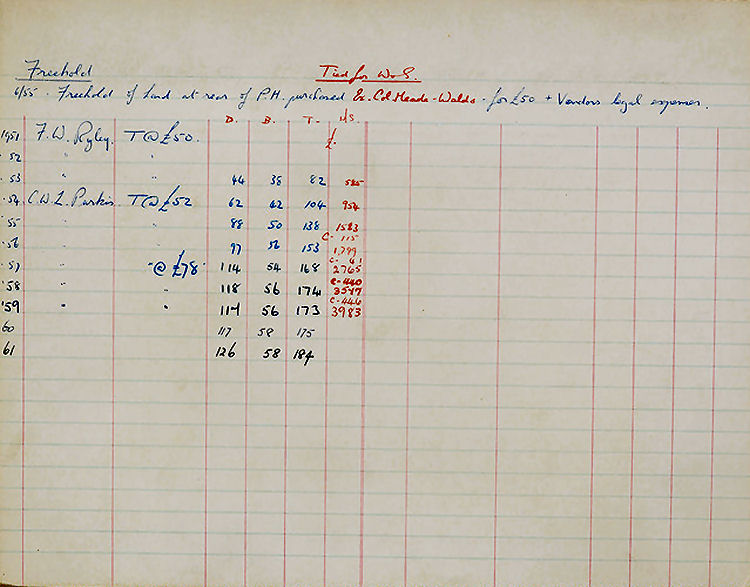 Freehold Tied for W & S.
6/55 . Freehold of Land at rear of P.H. purchased Ex. Col Meade-Waldo - for £50 + Vendors legal expenses.
D. B. T. W/S.
1951 F. W. Ryley. T @ £50. £.
52 " "
53 44 38 82 585
54 C.W.L. Parkis T@ £52 62 42 104 954
55 " " 88 50 138 1583
C- 115
56 " " 97 56 153 1,799
C- 61
57 " @ £78 - 114 54 168 2765
C-440
58 " " 118 56 174 3517
C-446
'59 " " 117 56 173 3983
60 117 58 175
61 126 58 184